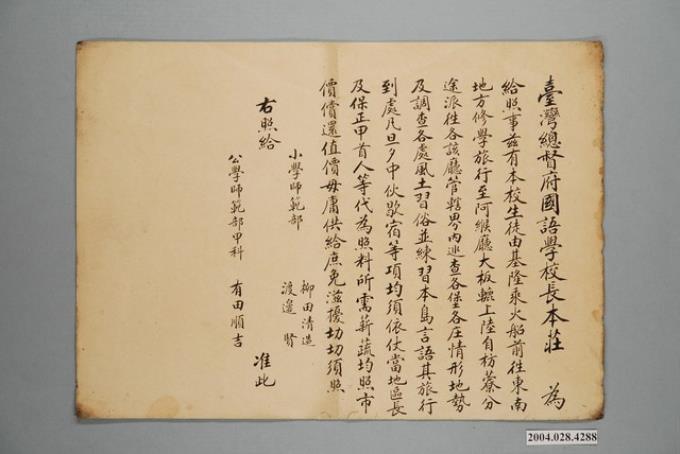 臺灣總督府國語學校長本莊 為
給照事茲有本校生徒由基隆乘火船前往東南
地方修學旅行至阿緱廳大板轆上陸自枋藔分
途派往各該廳管轄界內巡查各堡各庄情形地勢
及調查各處風土習俗並練習本島言語其旅行
到處凡旦夕中伙歇宿等項均須依仗當地區長
及保正甲首人等代為照料所需薪蔬均照市
價償還值價毋庸供給庶免滋擾切切須照
右照給
小學師範部 柳田清造
渡邊 賢
公學師範部甲科 有田順吉
准此
2004.028.4288